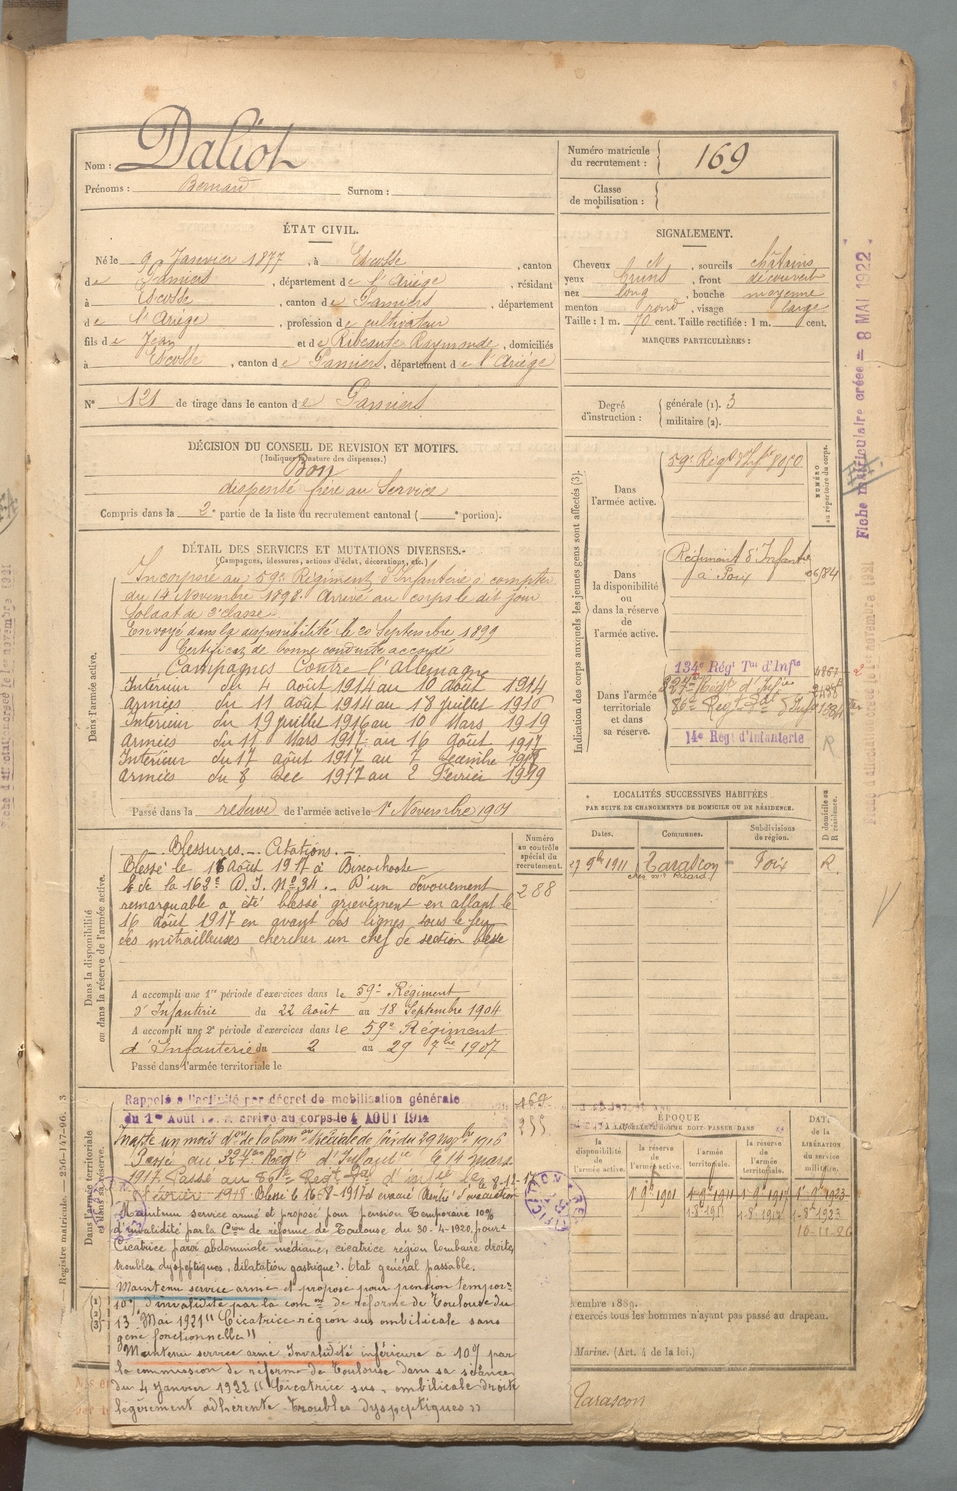 Nom : Daliot
Prénoms : Bernard Surnom :
Numéro matricule du recrutement : 169
Classe de mobilisation :
ÉTAT CIVIL.
Né le 9 Janvier 1877, à Escosse, canton
de Pamiers, département de l'Ariège, résidant
à Escosse, canton de Pamiers, département
de l'Ariège, profession de cultivateur
fils de Jean et de Ribeaute Raymonde, domiciliés
à Escosse, canton de Pamiers, département de l'Ariège
N° 121 de tirage dans le canton de Pamiers
SIGNALEMENT.
Cheveux et, sourcils châtains
yeux bruns, front découvert
nez long, bouche moyenne
menton rond, visage large
Taille : 1 m. 70 cent. Taille rectifiée : 1 m. cent.
MARQUES PARTICULIÈRES :
Degré d'instruction : générale (1). 3
militaire (2).
DÉCISION DU CONSEIL DE REVISION ET MOTIFS.
(Indiquer la nature des dispenses.)
Bon
dispensé frère au Service
Compris dans la 2e partie de la liste du recrutement cantonal ( e portion).
DÉTAIL DES SERVICES ET MUTATIONS DIVERSES.
(Campagnes, blessures, actions d'éclat, décorations, etc.)
Dans l'armée active.
Incorporé au 59e Régiment d'Infanterie à compter
du 14 Novembre 1898. Arrivé au corps le dit jour
Soldat de 2e classe
Envoyé dans la disponibilité le 20 Septembre 1899
Certificat de bonne conduite accordé
Campagnes Contre l'Allemagne
Intérieur du 4 Août 1914 au 10 Août 1914
Armées du 11 Août 1914 au 18 Juillet 1916
Intérieur du 19 Juillet 1916 au 10 Mars 1919
Armées du 11 Mars 1917 au 16 Août 1917
Intérieur du 17 Août 1917 au 7 Décembre
Armées du 8 Dec 1917 au 2 Février 1919
Passé dans la réserve de l'armée active le 1er Novembre 1901
Dans la disponibilité ou dans la réserve de l'armée active.
Blessures - Citations -
Blessé le 16 Août 1917 à
de la 163e D.I. N° 34. D'un dévouement
remarquable a été blessé grièvement en allant le
16 Août 1917 en avant des lignes sous le feu
des mitrailleuses chercher un chef de section blessé
Numéro au contrôle spécial du recrutement.
288
A accompli une 1re période d'exercices dans le 59e Régiment
d'Infanterie du 22 Août au 18 Septembre 1904
A accompli une 2e période d'exercices dans le 59e Régiment
d'Infanterie du 2 au 29 7bre 1907
Passé dans l'armée territoriale le
Indication des corps auxquels les jeunes gens sont affectés (3).
NUMÉRO au répertoire du corps.
Dans l'armée active.
59e Régt d'Inf
Dans la disponibilité ou dans la réserve de l'armée active.
Régiment d'Infanterie
à Foix
Dans l'armée territoriale et dans sa réserve.
134e Régt Tal d'Infie
14e Régt d'Infanterie
R
LOCALITÉS SUCCESSIVES HABITÉES
PAR SUITE DE CHANGEMENTS DE DOMICILE OU DE RÉSIDENCE.
Dates. Communes. Subdivisions de région. D domicile ou R résidence.
27 9bre 1911 Tarascon Foix R.
ÉPOQUE
la disponibilité de l'armée active. la réserve de l'armée active. l'armée territoriale. la réserve de l'armée territoriale.
DATE de la LIBÉRATION du service militaire.
1er 9bre 1901 1er 9bre 1911 1er 9bre 1917 1er 9bre 1923
Dans l'armée territoriale et dans sa réserve.
Rappelé à l'activité par décret de mobilisation générale
du 1er Août arrivé au corps le 4 AOUT 1914
Passé au Régt d'Infantie le 14 Mars
1917. Passé au
Février 1918 Blessé le 16-8-1917 évacué
Maintenu service armé et proposé pour pension temporaire 10%
d'invalidité par la Cion de réforme de Toulouse du 30-4-1920, pour :
Cicatrice paroi abdominale médiane, cicatrice région lombaire droite,
troubles dyspeptiques, dilatation gastrique. Etat général passable.
Maintenu service armé et proposé pour pension tempor=
10% d'invalidité par la comon de réforme de Toulouse du
13 Mai 1921 "Cicatrice région sus ombilicale sans
gêne fonctionnelle"
Maintenu service armé Invalidité inférieure à 10% par
la commission de réforme de Toulouse dans sa séance
du 4 Janvier 1922 "Cicatrice sus ombilicale droite
légèrement adhérente troubles dyspeptiques"
embre 1889.
exercés tous les hommes n'ayant pas passé au drapeau.
Marine. (Art. 4 de la loi.)
Tarascon
Fiche matriculaire créée = 8 MAI 1922
Registre matricule.